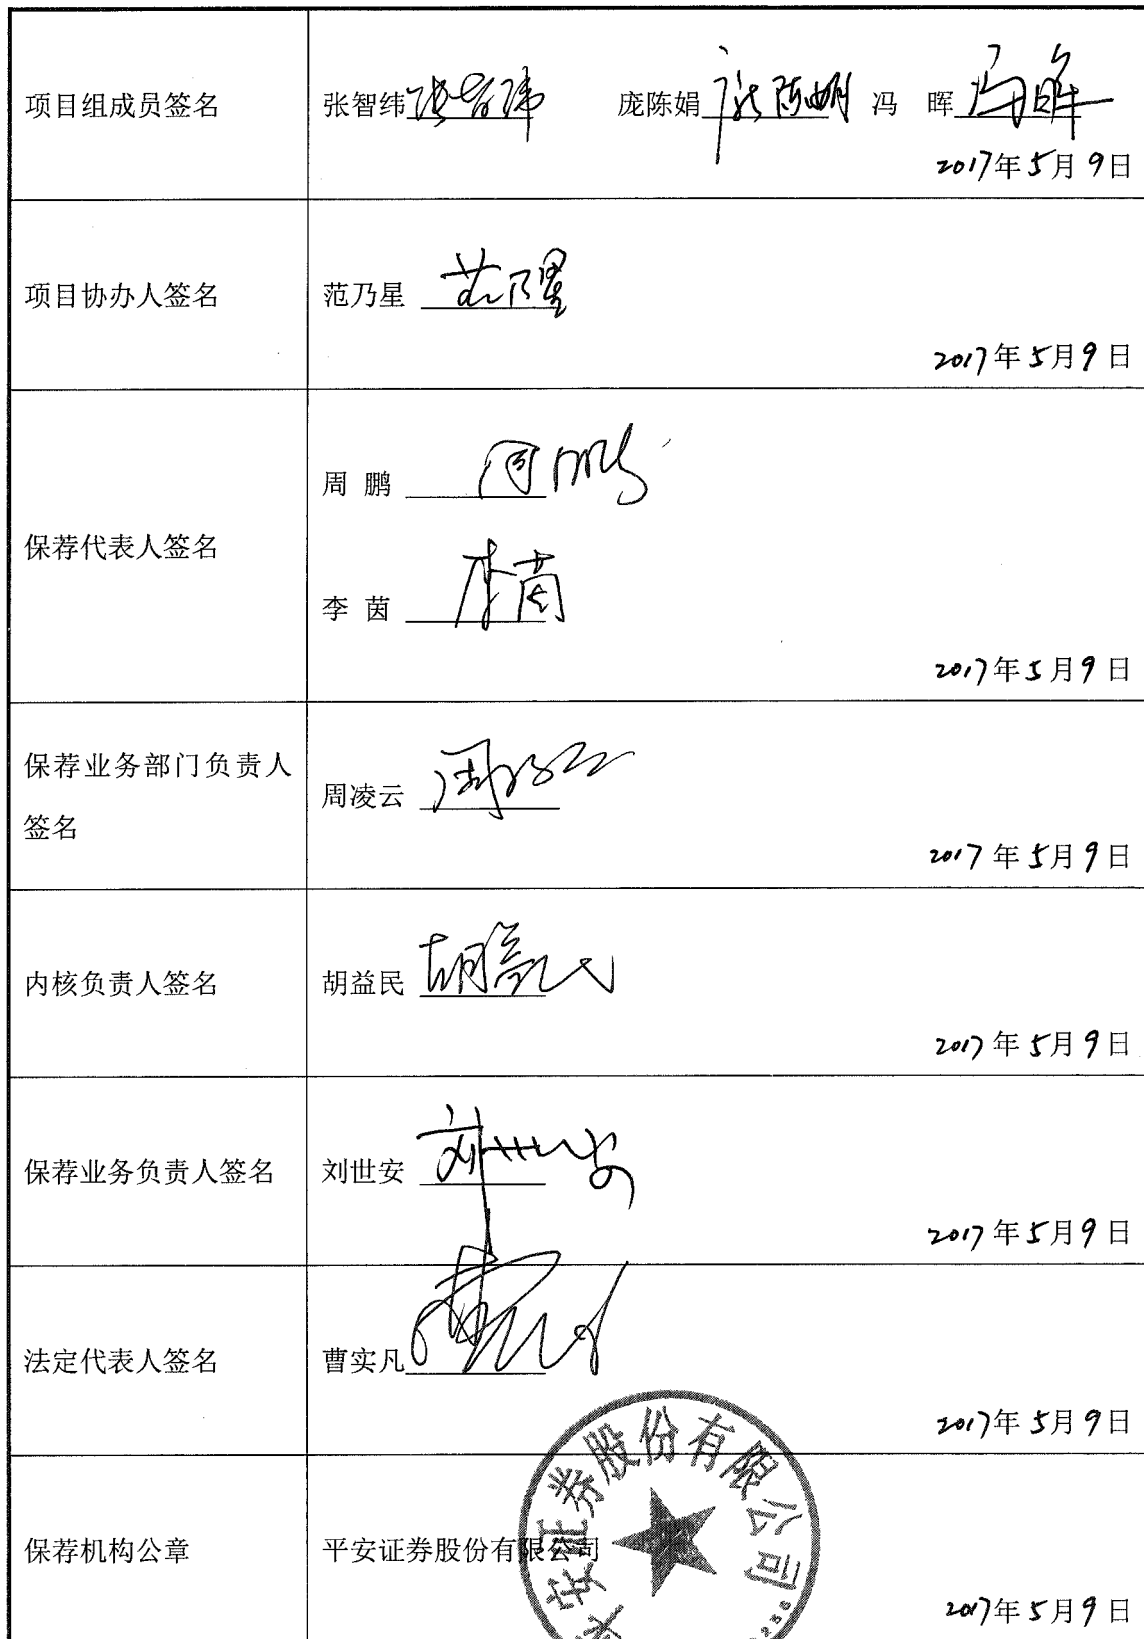 项目组成员签名
张智纬 张智纬 庞陈娟 庞陈娟 冯 晖 冯晖
2017年5月9日
项目协办人签名
范乃星 范乃星
2017年5月9日
保荐代表人签名
周 鹏 周鹏
李 茵 李茵
2017年5月9日
保荐业务部门负责人
签名
周凌云 周凌云
2017年5月9日
内核负责人签名
胡益民 胡益民
2017年5月9日
保荐业务负责人签名
刘世安 刘世安
2017年5月9日
法定代表人签名
曹实凡
2017年5月9日
保荐机构公章
平安证券股份有限公司
平安证券股份有限公司
2017年5月9日